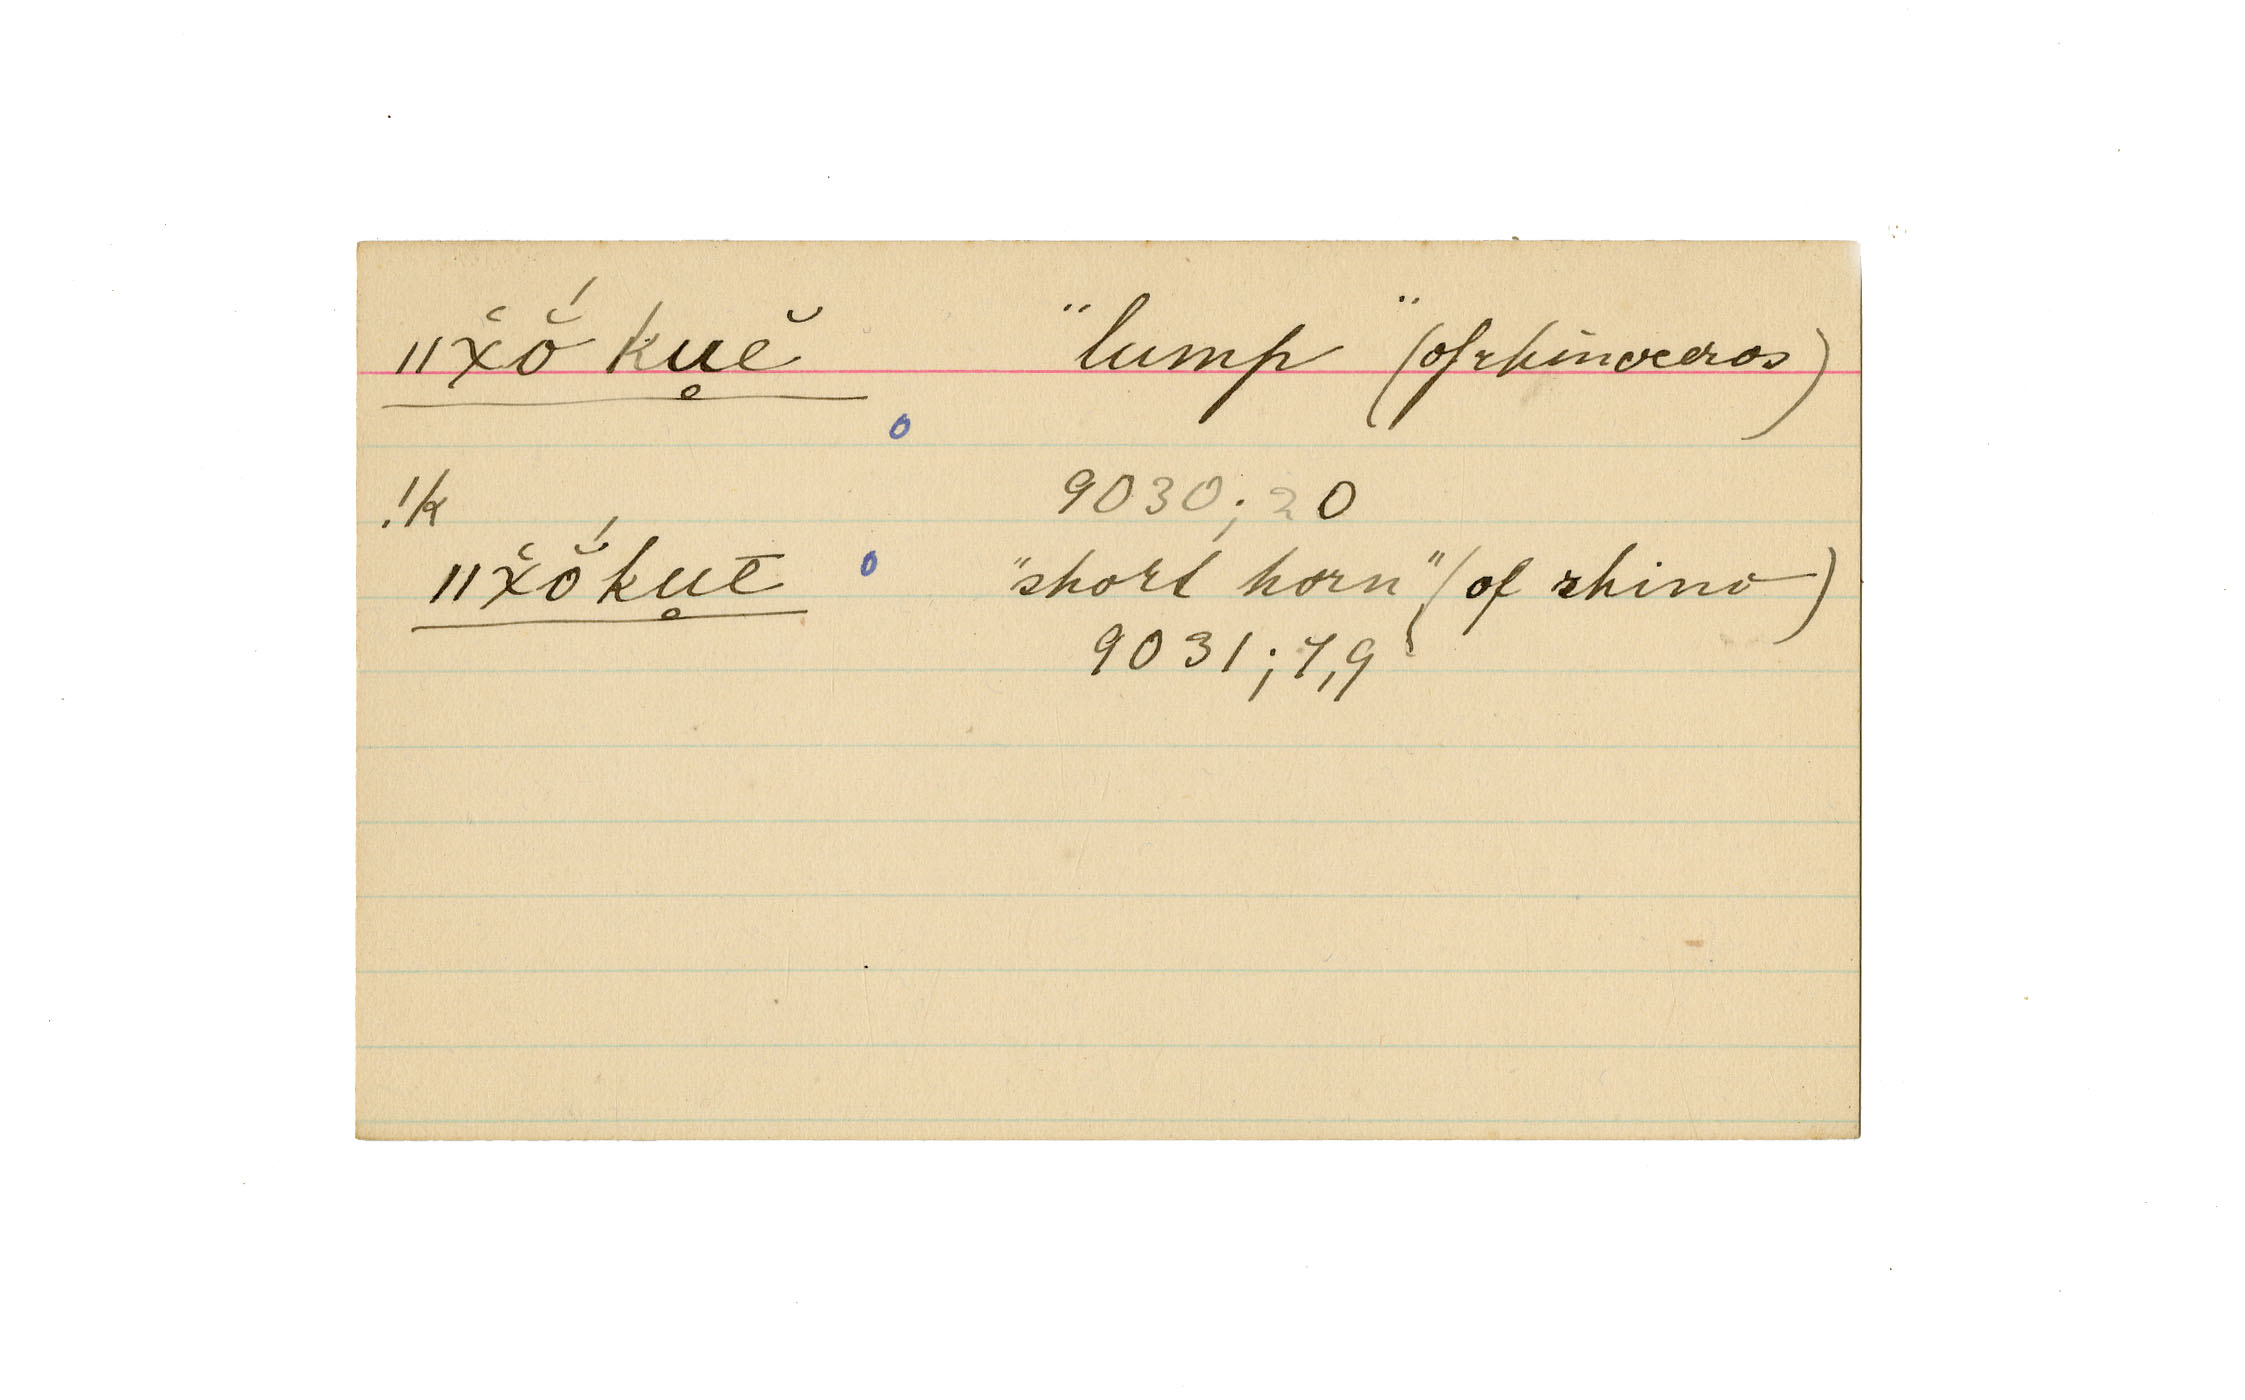 ǁχ̆ŏ́ ku̥ĕ "lump" (of rhinoceros)
!k 9030; 20
ǁχ̆ŏ́ku̥ē "short horn" (of rhino)
9031; 7,9